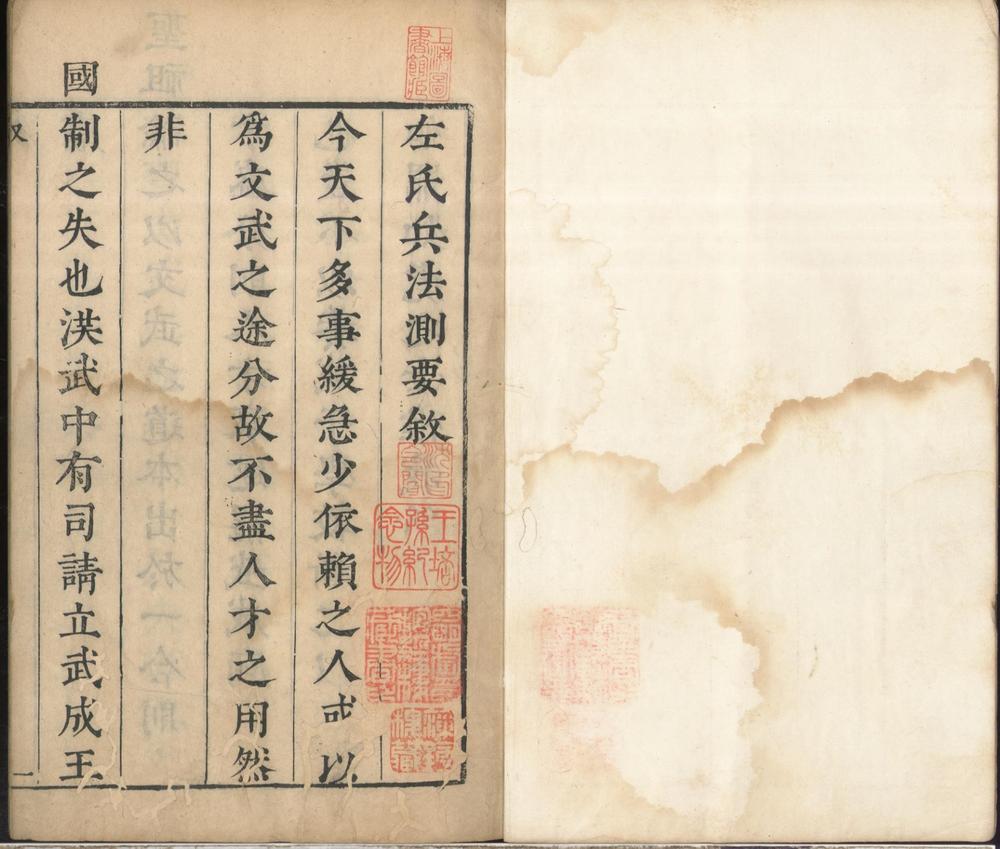 左氏兵法測要敘
今天下多事緩急少依賴之人或以
爲文武之途分故不盡人才之用然
非
國制之失也洪武中有司請立武成王
上海圖書館藏
王培孫紀念物